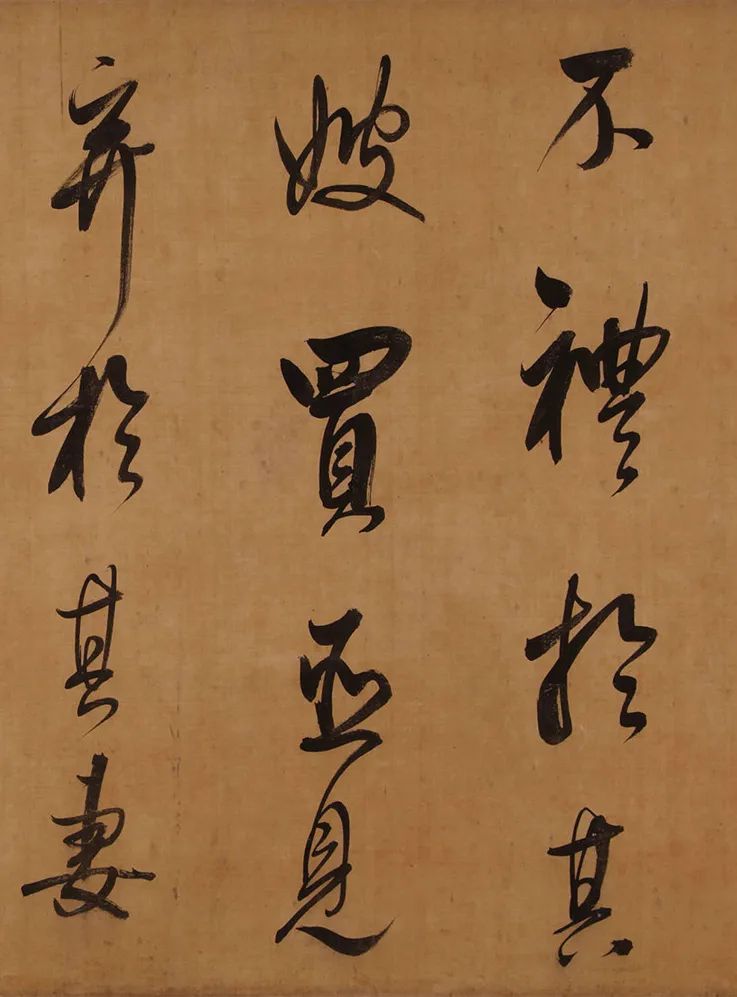 不禮於其
嫂買臣見
弃於其妻